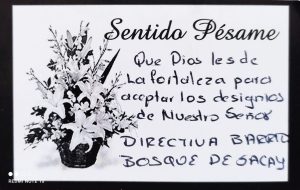 Sentido Pésame
Que Dios les de
La fortaleza para
aceptar los designios
de Nuestro Señor
DIRECTIVA BARRIO
BOSQUE DE SACAY
REDMI NOTE 10